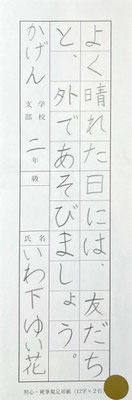 よく晴れた日には、友だち
と、外であそびましょう。
学校
支部
かげん
二年
級
氏名
いわ下ゆい花
初心・硬筆規定用紙(12字×2行)